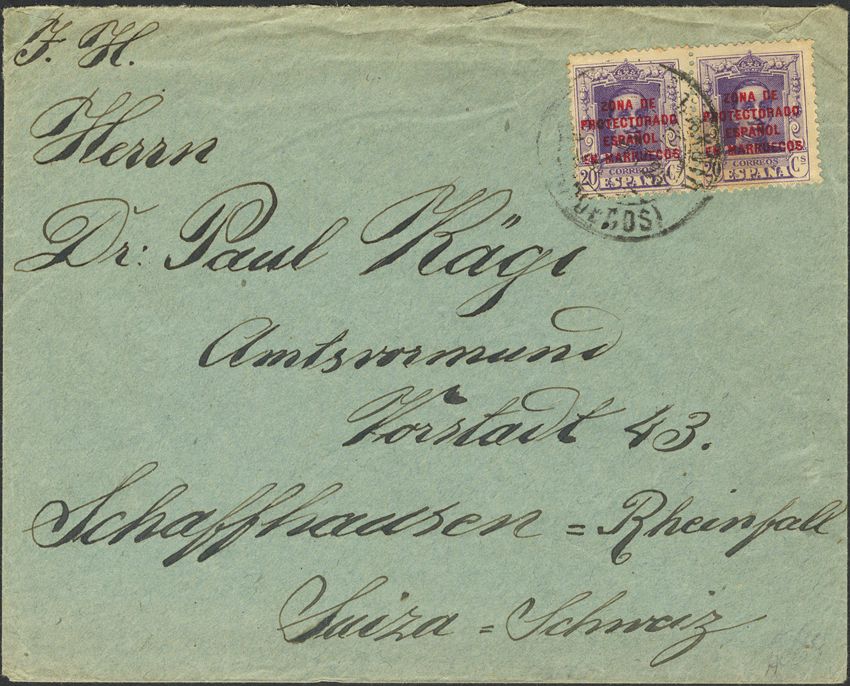 J. H.
Herrn
Dr: Paul Kägi
Amtsvormund
Vorstadt 43.
Schaffhausen = Rheinfall
Suiza = Schweiz
ZONA DE
PROTECTORADO
ESPAÑOL
EN MARRUECOS
CORREOS
20 ESPAÑA Cs
ZONA DE
PROTECTORADO
ESPAÑOL
EN MARRUECOS
CORREOS
ESPAÑA Cs